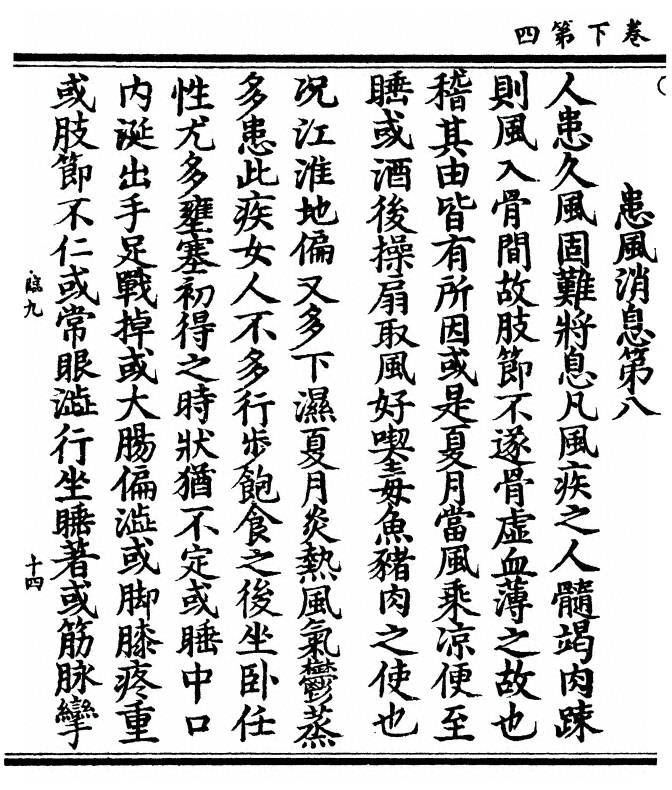 卷下第四
患風消息第八
人患久風固難將息凡風疾之人髓竭肉踈
則風入骨間故肢節不遂骨虛血薄之故也
稽其由皆有所因或是夏月當風乘凉便至
睡或酒後操扇取風好喫毒魚豬肉之使也
况江淮地偏又多下濕夏月炎熱風氣鬱蒸
多患此疾女人不多行步飽食之後坐卧任
性尤多壅塞初得之時狀猶不定或睡中口
内涎出手足戰掉或大腸偏澁或脚膝疼重
或肢節不仁或常眼澁行坐睡著或筋脉攣
臨九
十四